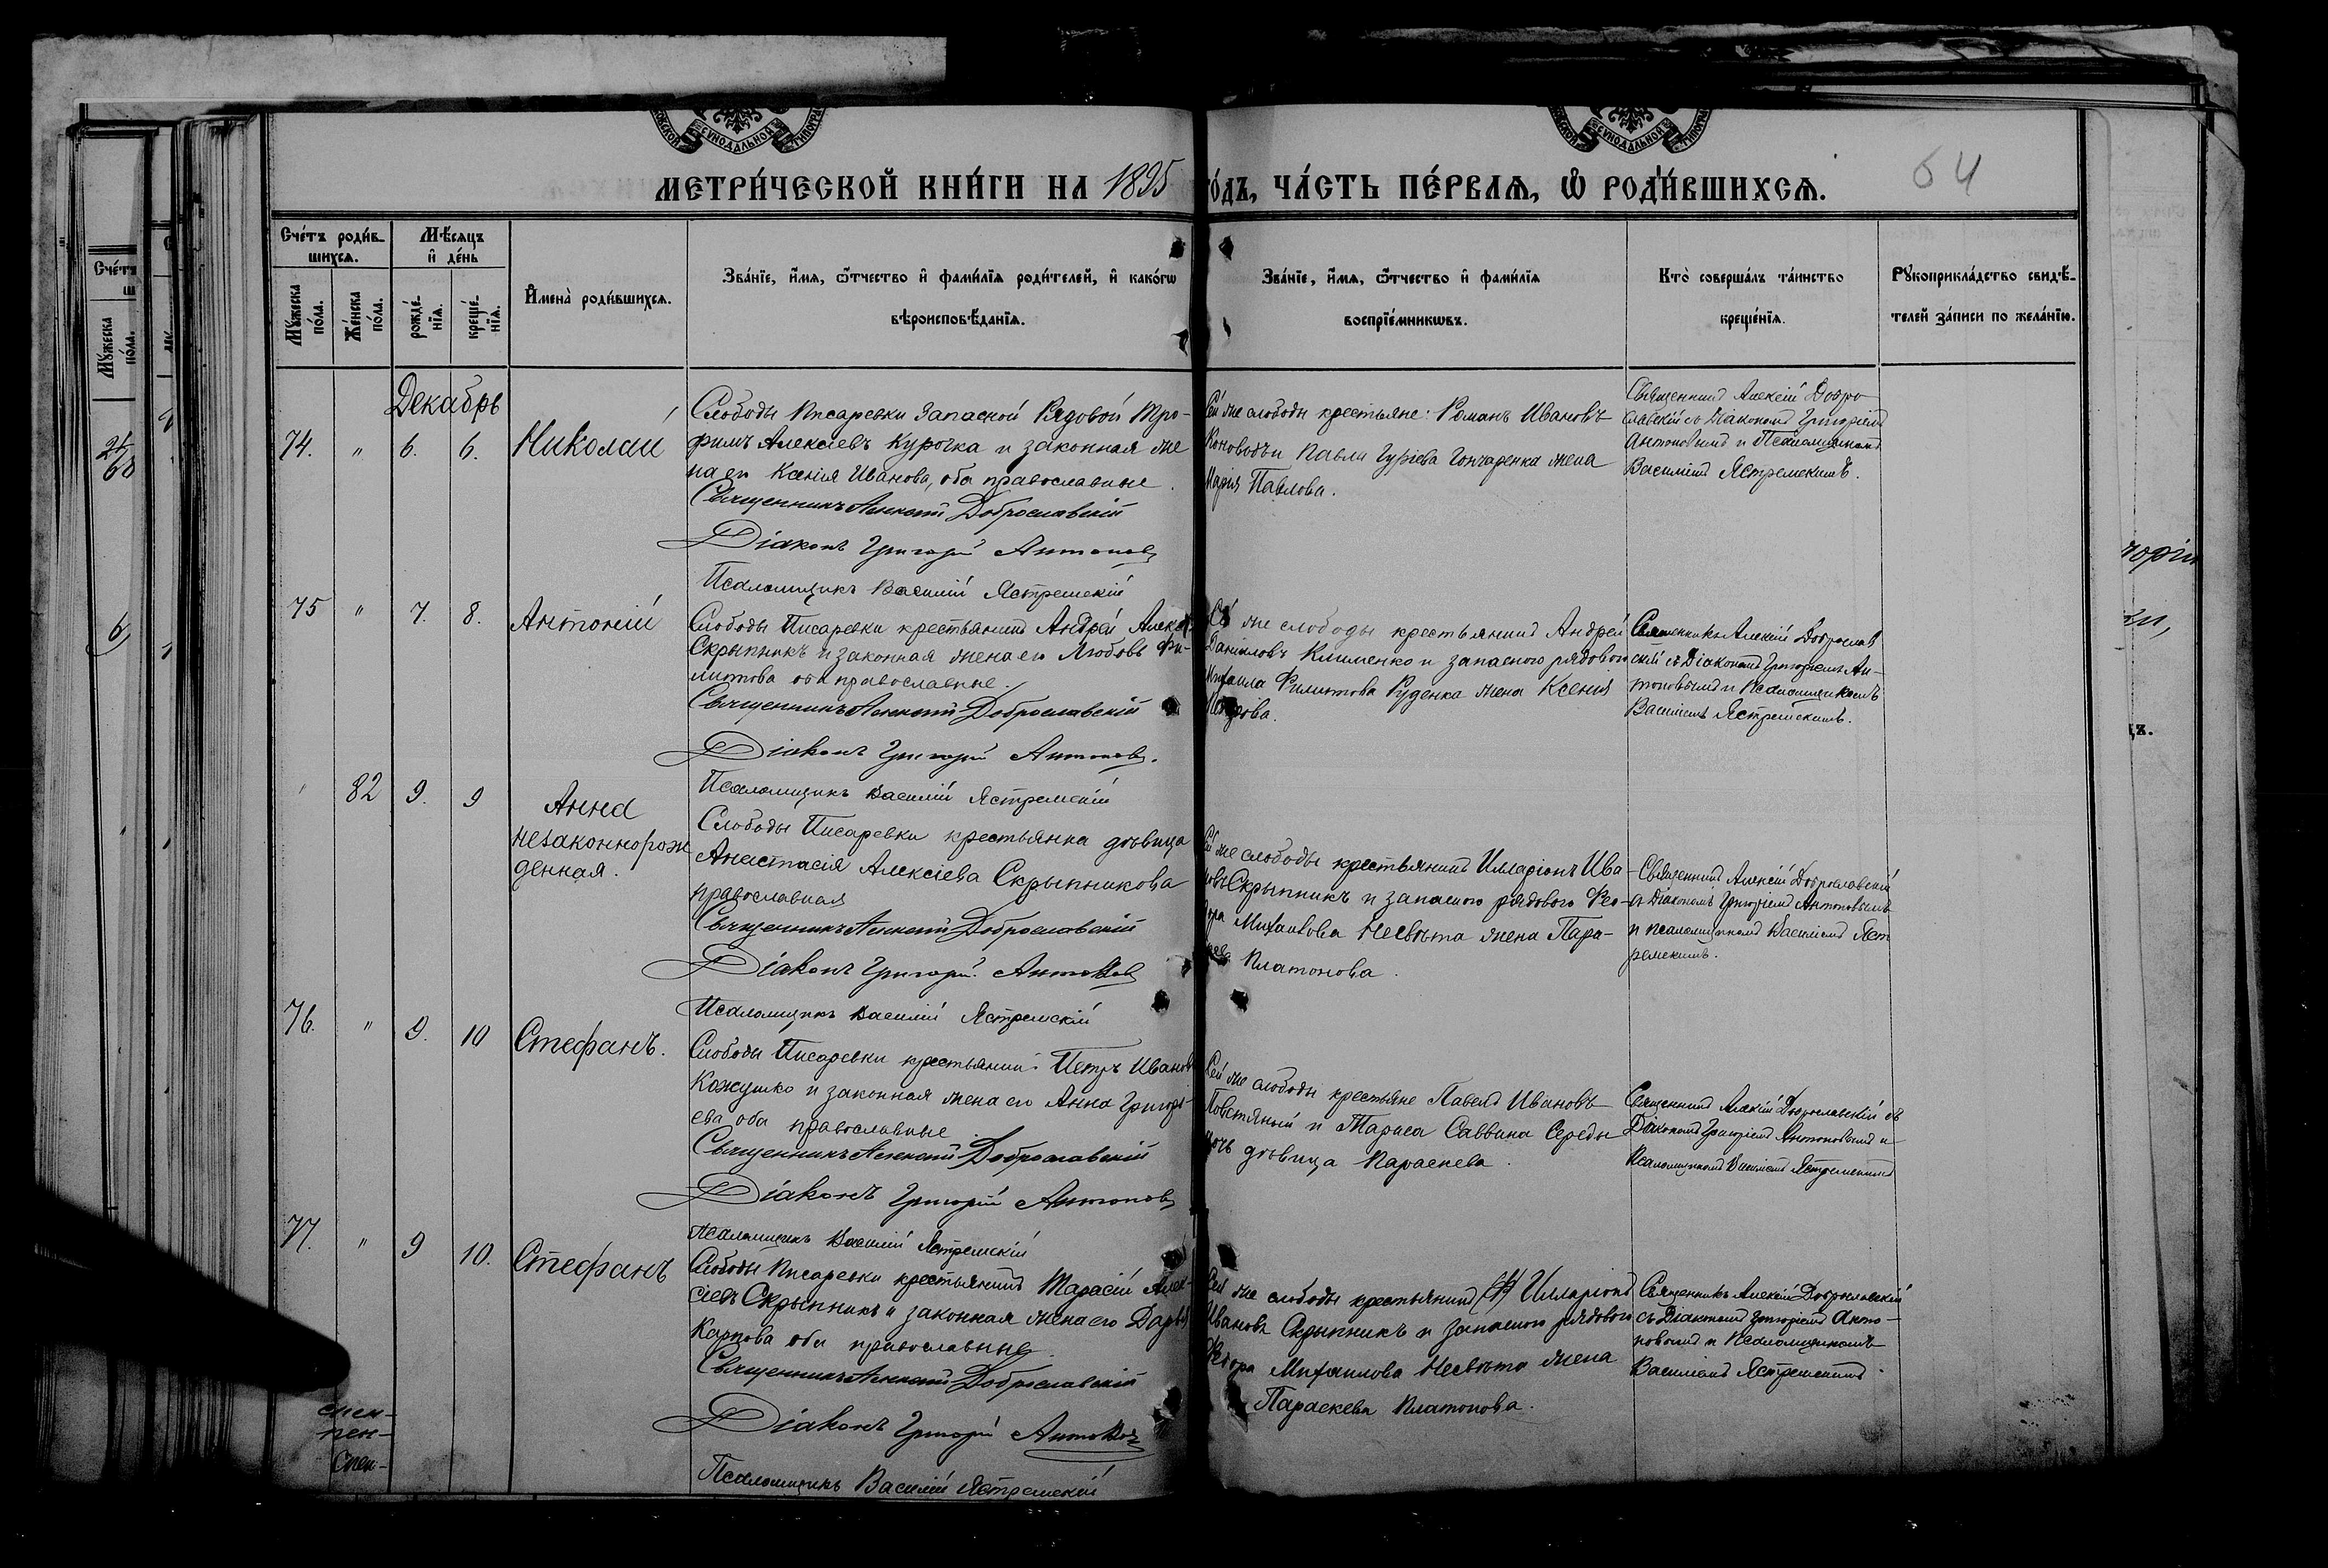 МЕТРИ́ЧЕСКОЙ КНИ́ГИ НА 1895 ГО́ДЪ, ЧА́СТЬ ПЕ́РВАѦ, Ѡ РОДИ́ВШИХСѦ.
64
Сче́тъ роди́в-
шихсѧ.
Мѣ́сѧцъ
и҆ де́нь
Мꙋ́жеска
по́ла.
Же́нска
по́ла.
рожде́-
нїѧ.
креще́-
нїѧ.
И҆мена̀ роди́вшихсѧ.
Зва́нїе, и҆́мѧ, ѻ҆́тчество и҆ фами́лїѧ роди́телей, и҆ како́гѡ
вѣроисповѣ́данїѧ.
Зва́нїе, и҆́мѧ, ѻ҆́тчество и҆ фами́лїѧ
воспрїе́мникѡвъ.
Кто̀ соверша́лъ та́инство
креще́нїѧ.
Рꙋкоприкла́дство свидѣ́-
телей за́писи по жела́нїю.
Декабрь
74. " 6. 6. Николай
Слободы Писаревки Запасной Рядовой Тро-
фимъ Алексіевъ Курочка и законная же
на ег Ксенія Иванова, оба православные.
Священникъ Алексій Доброславскій
Діаконъ Григорій Антоновъ
Псаломщикъ Василій Ястремскій
Сей же слободы крестьяне: Романъ Ивановъ
Коноводъи Павла Гуріева Гончаренка жена
Марія Павлова.
Священникъ Алексій Добро
славскій съ Діакономъ Григоріемъ
Антоновымъ и Псаломщикомъ
Василіемъ Ястремскимъ.
75 " 7. 8. Антоній
Слободы Писаревки крестьянинъ Андрей Алекс
Скрыпникъ и законная жена его Любовь Фи-
липова оба православные.
Священникъ Алексій Доброславскій
Діаконъ Григорій Антоновъ.
Псаломщикъ Василій Ястремскій
же слободы крестьянинъ Андрей
Даніиловъ Клименко и запасного рядового
Михаила Филиппова Руденка жена Ксенія
Петрова.
Священникъ Алексій Доброслав
скій съ Діакономъ Григоріемъ Ан-
тоновымъ и Псаломщикомъ
Василіемъ Ястремскимъ.
" 82 9. 9 Анна
незаконнорож
денная.
Слободы Писаревки крестьянка дѣвица
Анастасія Алексіева Скрыпникова
православная
Священникъ Алексій Доброславскій
Діаконъ Григорій Антоновъ
Псаломщикъ Василій Ястремскій
Сей же слободы крестьянинъ Илларіонъ Ива
новъ Скрыпникъ и запасного рядового Фео-
дора Михаилова Несвѣта жена Пара-
Платонова.
Священникъ Алексій Доброславскій
съ Діакономъ Григоріемъ Антоновымъ
и псаломщикомъ Василіемъ Яст
ремскимъ.
76. " 9. 10 Стефанъ.
Слободы Писаревки крестьянинъ Петръ Иванов
Кожушко и законная жена его Анна Григорі-
ева оба православные
Священникъ Алексій Доброславскій
Діаконъ Григорій Антоновъ
Псаломщикъ Василій Ястремскій
Сей же слободы крестьяне Павелъ Ивановъ
Повстяный и Тараса Саввина Середы
дочь дѣвица Параскева.
Священникъ Алексій Доброславскій съ
Діакономъ Григоріемъ Антоновымъ и
Псаломщикомъ Василіемъ Ястремскимъ
77. " 9 10. Стефанъ
Слободы Писаревки крестьянинъ Тарасій Алек-
сіевъ Скрыпникъ и законная жена его Дарья
Карпова оба православные.
Священникъ Алексій Доброславскій
Діаконъ Григорій Антоновъ
Псаломщикъ Василій Ястремскій
Сей же слободы крестьянинъ Илларіонъ
Ивановъ Скрыпникъ и запасного рядового
Ѳеодора Михаилова Несвѣта жена
Параскева Платонова.
Священникъ Алексій Доброславскій
съ Діакономъ Григоріемъ Анто-
новымъ и Псаломщикомъ
Василіемъ Ястремскимъ.